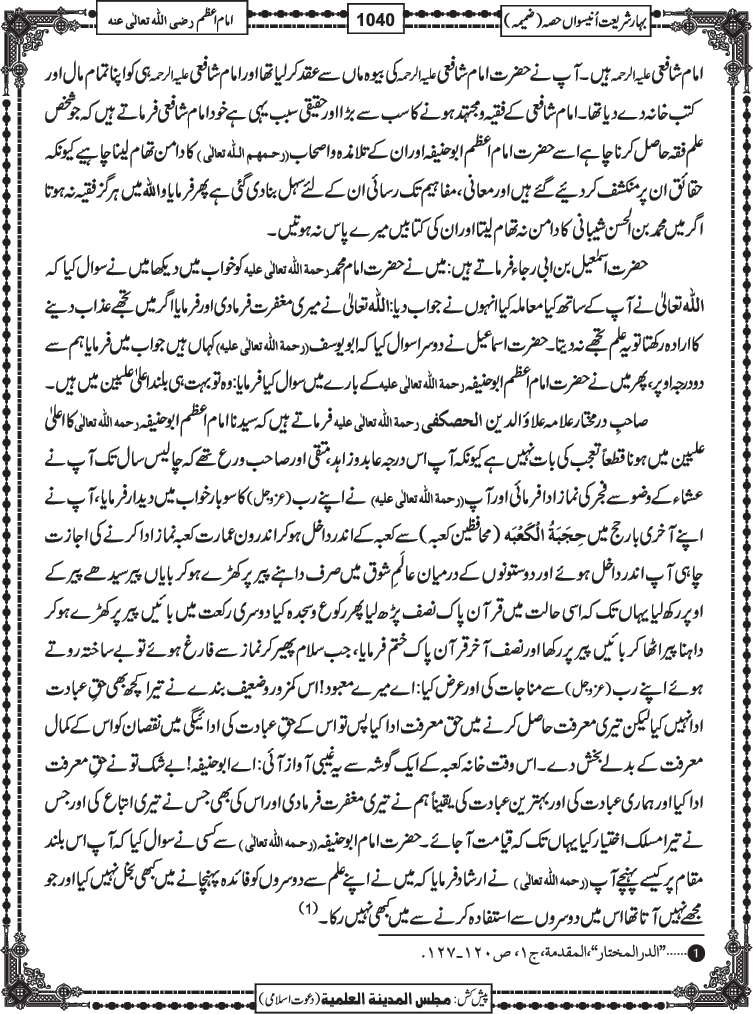 بہار شریعت اُنیسواں حصہ (ضمیمہ)
1040
امام اعظم رضی اللہ تعالیٰ عنہ
امام شافعی علیہ الرحمہ ہیں۔ آپ نے حضرت امام شافعی علیہ الرحمہ کی بیوہ ماں سے عقد کرلیا تھا اور امام شافعی علیہ الرحمہ ہی کو اپنا تمام مال اور
کتب خانہ دے دیا تھا۔ امام شافعی کے فقیہ و مجتہد ہونے کا سب سے بڑا اور حقیقی سبب یہی ہے خود امام شافعی فرماتے ہیں کہ جو شخص
علم فقہ حاصل کرنا چاہے اسے حضرت امام اعظم ابوحنیفہ اور ان کے تلامذہ واصحاب (رحمهم الله تعالى) کا دامن تھام لینا چاہیے کیونکہ
حقائق ان پر منکشف کردیئے گئے ہیں اور معانی، مفاہیم تک رسائی ان کے لئے سہل بنادی گئی ہے پھر فرمایا واللہ میں ہرگز فقیہ نہ ہوتا
اگر میں محمد بن الحسن شیبانی کا دامن نہ تھام لیتا اور ان کی کتابیں میرے پاس نہ ہوتیں۔
حضرت اسمٰعیل بن ابی رجاء فرماتے ہیں: میں نے حضرت امام محمد رحمة الله تعالى عليه کو خواب میں دیکھا میں نے سوال کیا کہ
اللہ تعالیٰ نے آپ کے ساتھ کیا معاملہ کیا انہوں نے جواب دیا: اللہ تعالیٰ نے میری مغفرت فرمادی اور فرمایا اگر میں تجھے عذاب دینے
کا ارادہ رکھتا تو یہ علم تجھے نہ دیتا۔ حضرت اسماعیل نے دوسرا سوال کیا کہ ابویوسف (رحمة الله تعالى عليه) کہاں ہیں جواب میں فرمایا ہم سے
دو درجہ اوپر، پھر میں نے حضرت امام اعظم ابوحنیفہ رحمة الله تعالى عليه کے بارے میں سوال کیا فرمایا: وہ تو بہت ہی بلند اعلیٰ علیین میں ہیں۔
صاحبِ درمختار علامہ علاؤ الدین الحصکفی رحمة الله تعالى عليه فرماتے ہیں کہ سیدنا امام اعظم ابوحنیفہ رحمه الله تعالى کا اعلیٰ
علیین میں ہونا قطعاً تعجب کی بات نہیں ہے کیونکہ آپ اس درجہ عابد و زاہد، متقی اور صاحب ورع تھے کہ چالیس سال تک آپ نے
عشاء کے وضو سے فجر کی نماز ادا فرمائی اور آپ (رحمة الله تعالى عليه) نے اپنے رب (عزوجل) کا سو بار خواب میں دیدار فرمایا، آپ نے
اپنے آخری بار حج میں حِجَبَةُ الْكَعْبَه (محافظین کعبہ) سے کعبہ کے اندر داخل ہوکر اندرون عمارت کعبہ نماز ادا کرنے کی اجازت
چاہی آپ اندر داخل ہوئے اور دو ستونوں کے درمیان عالمِ شوق میں صرف داہنے پیر پر کھڑے ہوکر بایاں پیر سیدھے پیر کے
اوپر رکھ لیا یہاں تک کہ اسی حالت میں قرآن پاک نصف پڑھ لیا پھر رکوع و سجدہ کیا دوسری رکعت میں بائیں پیر پر کھڑے ہوکر
داہنا پیر اٹھا کر بائیں پیر پر رکھا اور نصف آخر قرآن پاک ختم فرمایا، جب سلام پھیر کر نماز سے فارغ ہوئے تو بے ساختہ روتے
ہوئے اپنے رب (عزوجل) سے مناجات کی اور عرض کیا: اے میرے معبود! اس کمزور و ضعیف بندے نے تیرا کچھ بھی حقِ عبادت
ادا نہیں کیا لیکن تیری معرفت حاصل کرنے میں حق معرفت ادا کیا پس تو اس کے حقِ عبادت کی ادائیگی میں نقصان کو اس کے کمال
معرفت کے بدلے بخش دے۔ اس وقت خانہ کعبہ کے ایک گوشہ سے یہ غیبی آواز آئی: اے ابوحنیفہ! بے شک تو نے حقِ معرفت
ادا کیا اور ہماری عبادت کی اور بہترین عبادت کی یقیناً ہم نے تیری مغفرت فرمادی اور اس کی بھی جس نے تیری اتباع کی اور جس
نے تیرا مسلک اختیار کیا یہاں تک کہ قیامت آجائے۔ حضرت امام ابوحنیفہ (رحمه الله تعالى) سے کسی نے سوال کیا کہ آپ اس بلند
مقام پر کیسے پہنچے آپ (رحمه الله تعالى) نے ارشاد فرمایا کہ میں نے اپنے علم سے دوسروں کو فائدہ پہنچانے میں کبھی بخل نہیں کیا اور جو
مجھے نہیں آتا تھا اس میں دوسروں سے استفادہ کرنے سے میں کبھی نہیں رکا۔ (1)
1 ......"الدر المختار"، المقدمة، ج١، ص ١٢٠-١٢٧.
پیش کش: مجلس المدينة العلمية (دعوت اسلامی)